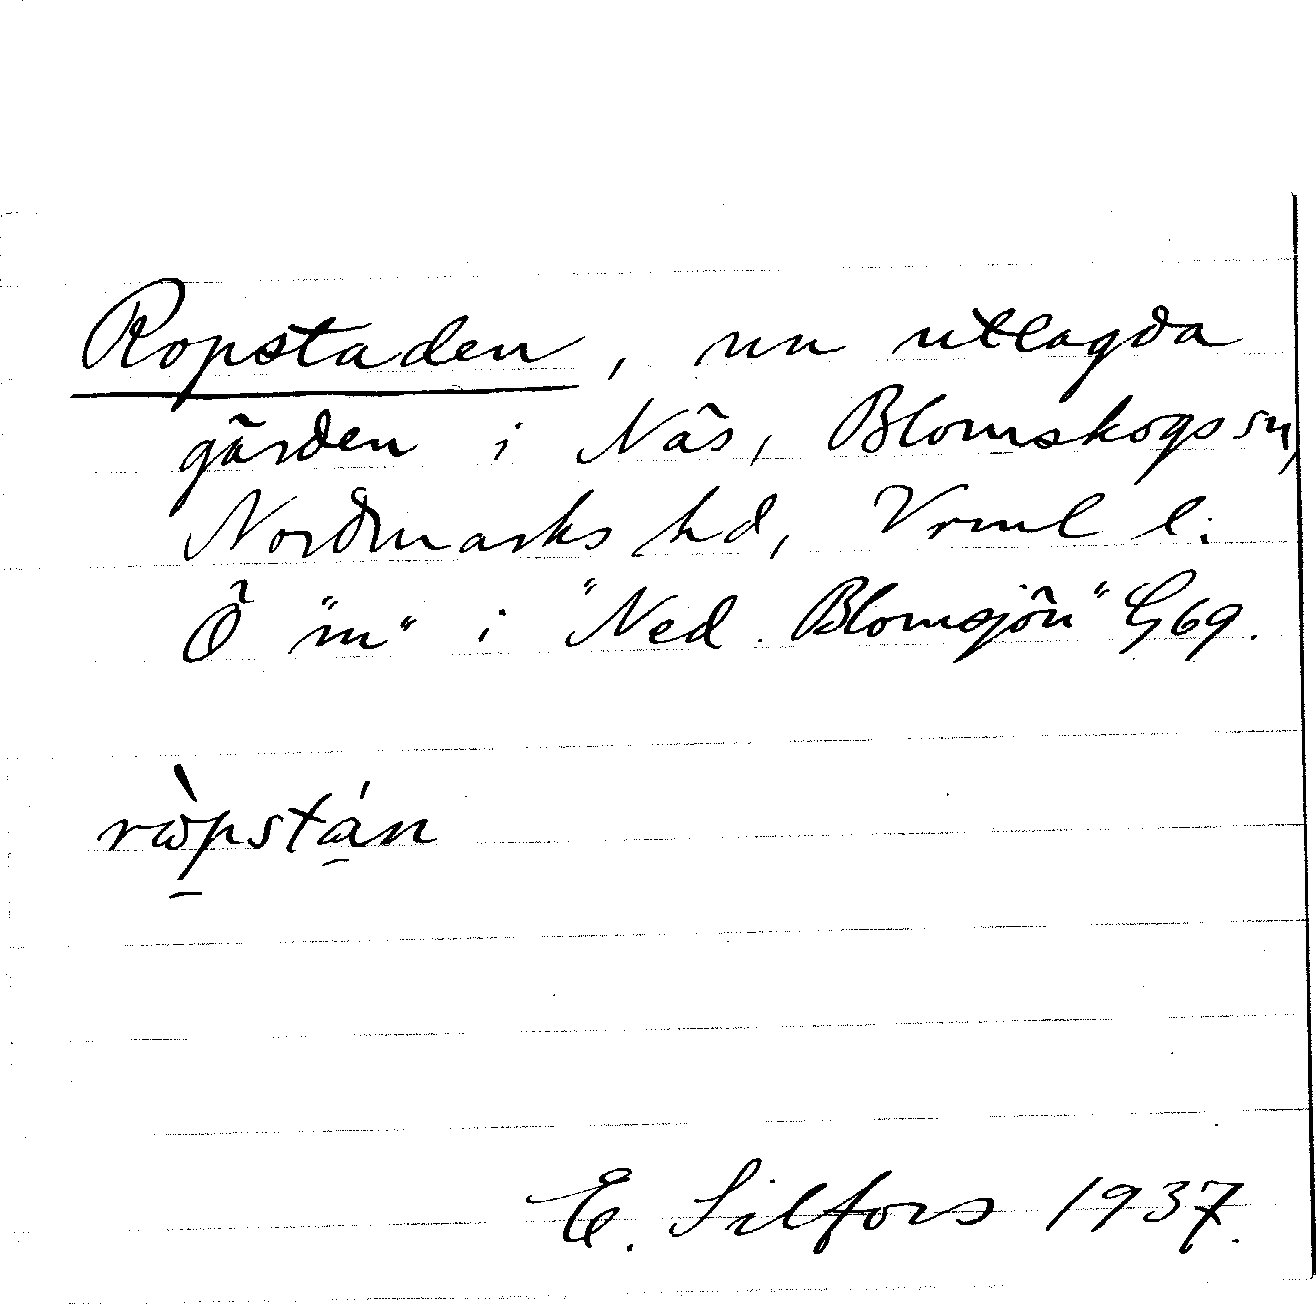 Ropstaden, nu utlagda
gården i Näs, Blomskogs sn,
Nordmarks hd, Vrml l.
Ö "m" i "Ned. Blomsjön" G69.
ròpstán
E. Silfors 1937.